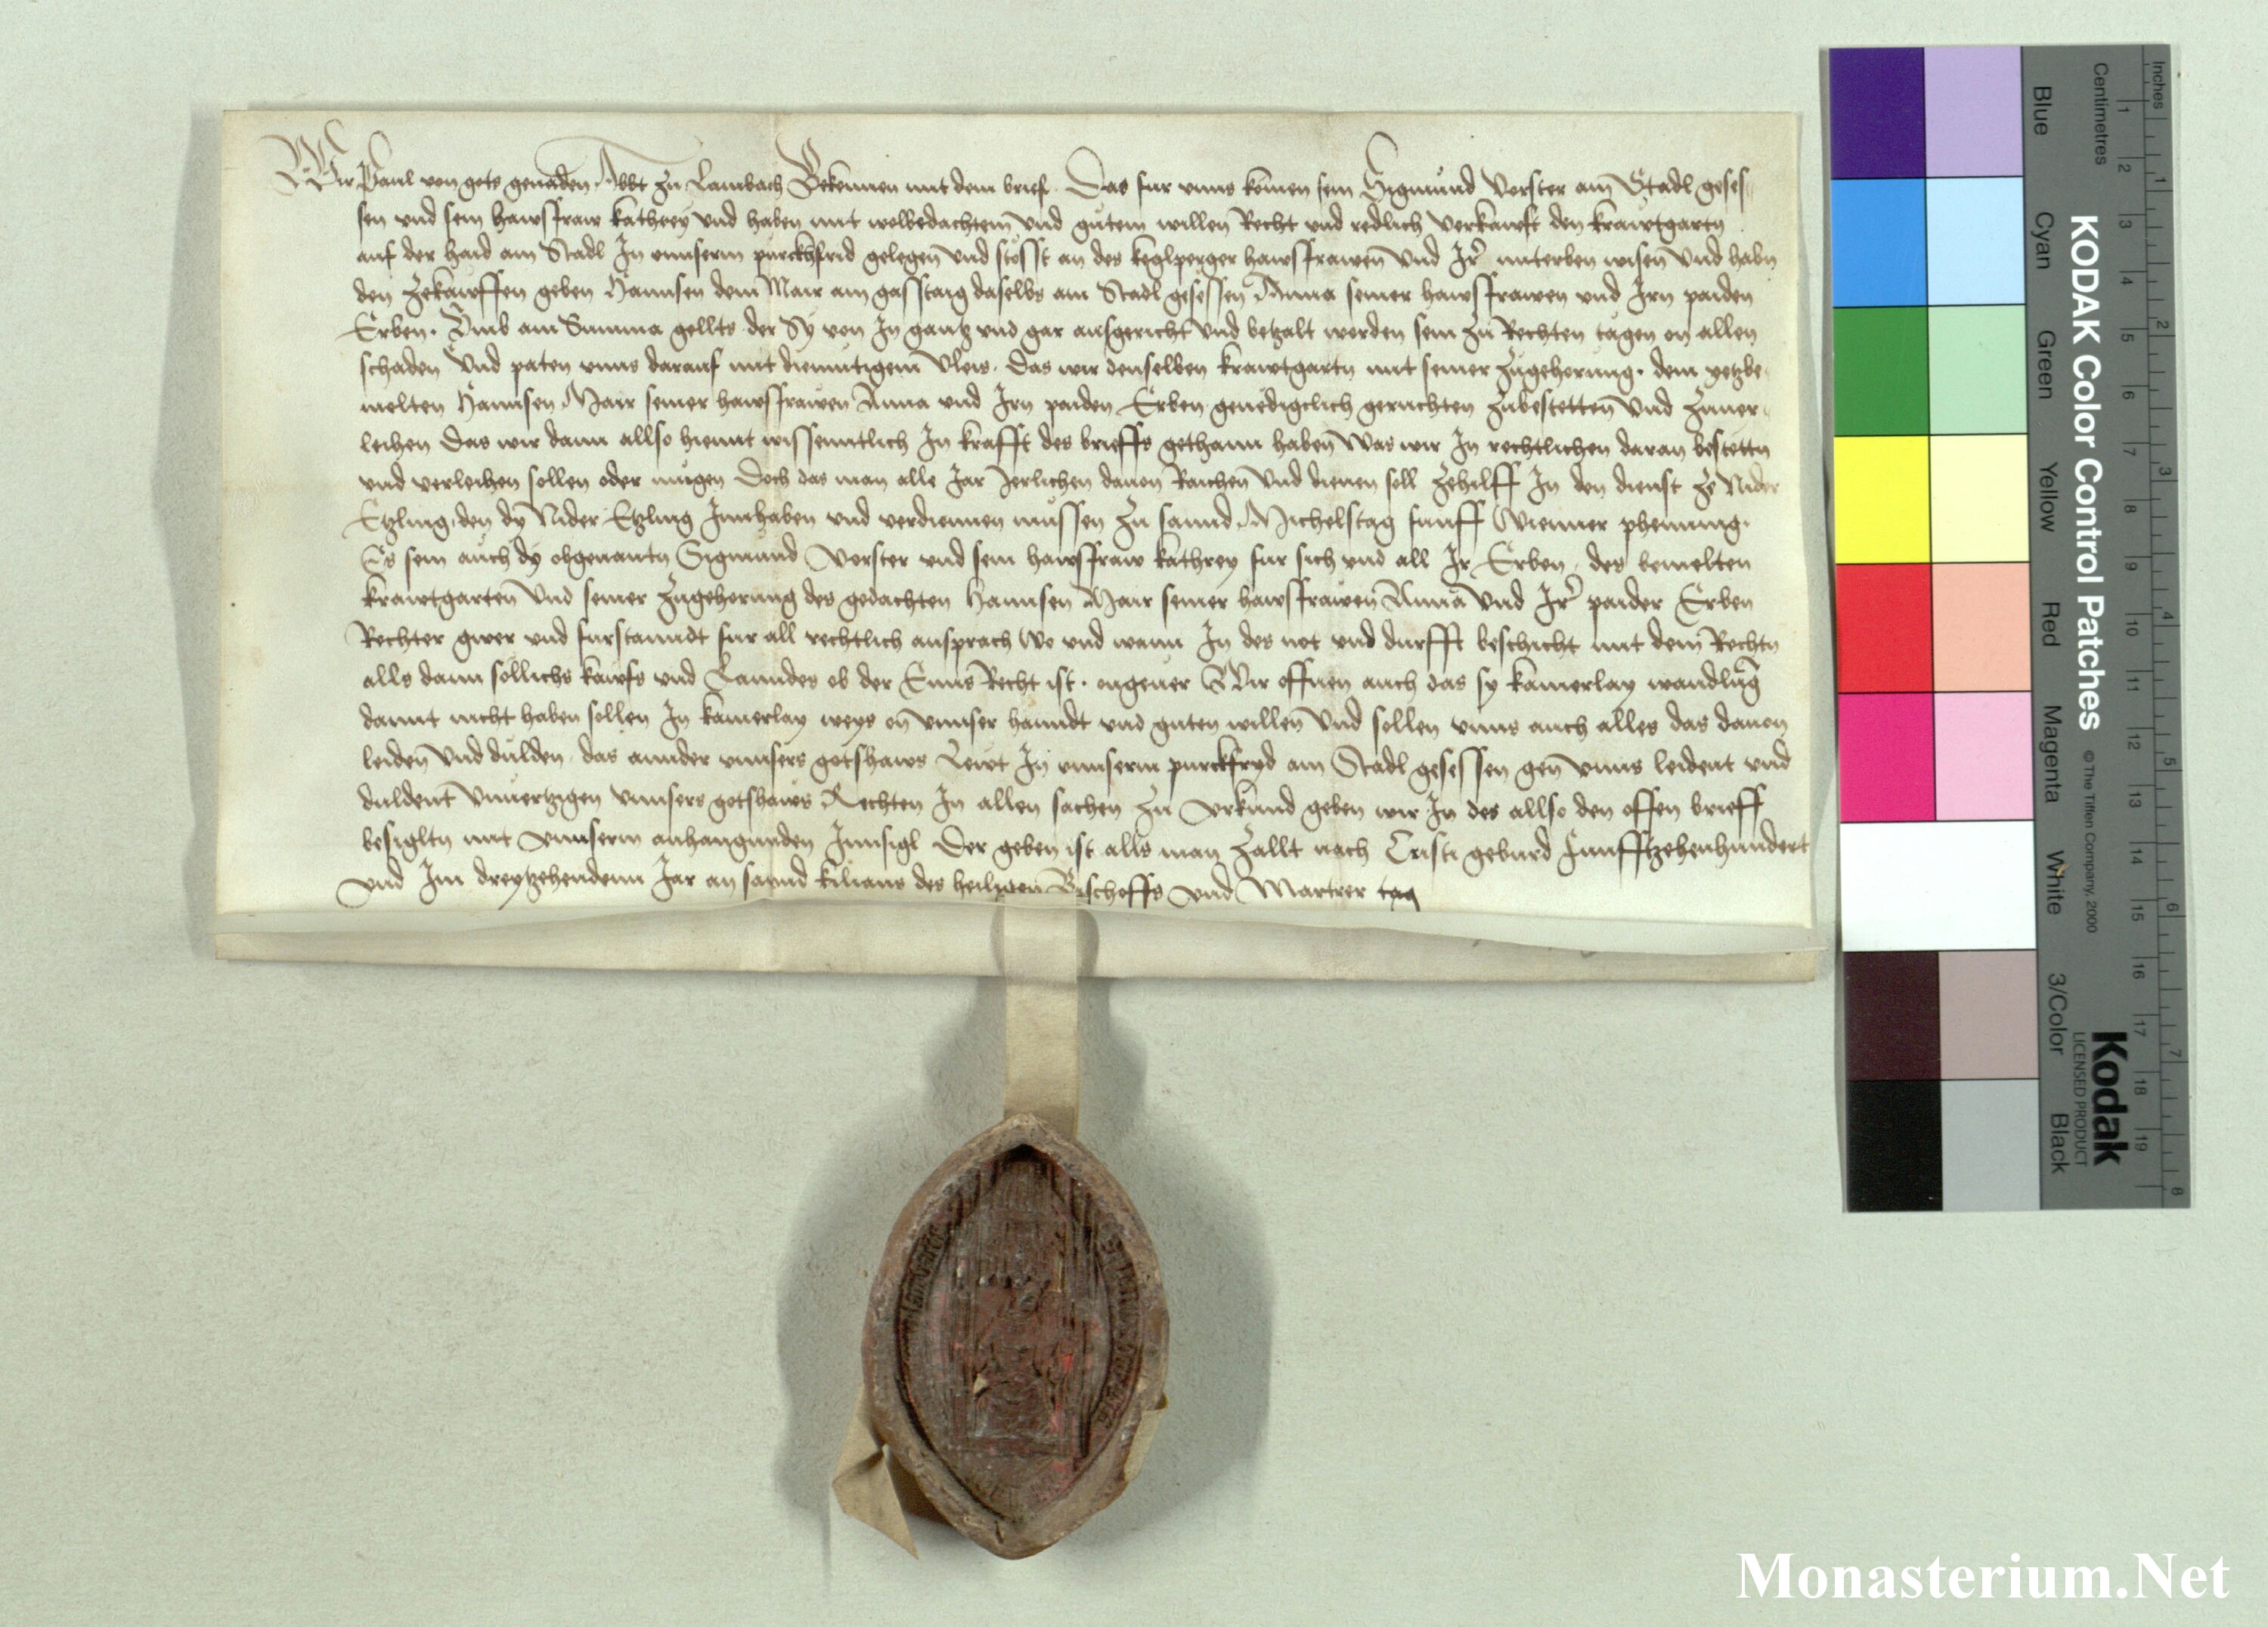 Wir Paul von gots genaden Abbt zu Lambach Bekennen mit dem brief. Das fur unns komen sein Sigmund Vorster am Stadl geses-
sen und sein hawsfraw kathrey und haben mit wolbedachtem und gutem willen Recht und redlich verkawft den krawtgartn
auf der haid am Stadl In unnserm purckhfrid gelegen und stosst an des keglperger hawsfrawen und Ir miterben wisen und habn
den zekawffen geben Hannsen dem Mair am gasstaig daselbs am Stadl gesessen Anna seiner hawsfrawen und Irn paiden
Erben. Umb ain Summa gellts der Sy von In gantz und gar ausgericht und betzalt worden sein zu Rechten tagen on allen
schaden Und paten unns darauf mit diemutigem vleis. Das wir denselben krawtgartn mit seiner zugehorung. dem yetzbe-
melten Hannsen Mair seiner hawsfrawen Anna und Irn paiden Erben genedigclich geruchten zubestetten und zuuer-
leihen Das wir dann allso hiemit wissenntlich In krafft des brieffs gethann haben Was wir In rechtlichen daran bestettn
und verleihen sollen oder mugen Doch das man alle Jar Jerlichen dauon Raichen und dienen soll zehilff In den dienst ze Nider
Etzling, den dy Nider Etzling Innhaben und verdiennen mussen zu sannd Michelstag funff Wienner phenning.
Es sein auch dy obgenantn Sigmund Vorster und sein hawsfraw kathrey fur sich und all Ir Erben. des bemelten
krawtgarten und seiner zugehorung des gedachten Hannsen Mair seiner hawsfrawen Anna und Ir paider Erben
Rechter gwer und furstanndt fur all rechtlich ansprach Wo und wann In des not und durfft beschicht mit dem Rechtn
alls dann sollichs kawfs und Lanndes ob der Enns Recht ist. ongeuer Wir offnen auch das sy kainerlay wandlung
damit nicht haben sollen In kainerlay weys on unnser hanndt und guten willen Und sollen unns auch alles das dauon
leiden und dulden. das annder unnsers gotshaws Lewt In unnserm purckfryd am Stadl gesessen gen unns leident und
duldent Unuertzigen unnsers gotshaws Rechten In allen sachen Zu Urkund geben wir In des allso den offen brieff
besigltn mit unnserm anhangunden Innsigl Der geben ist alls man zallt nach Cristi geburd Funfftzehenhundert
und Im dreytzehendenn Jar an sannd kilians des heiligen Bischoffs und Martrer tag
Blue
Cyan
Green
Yellow
Red
Magenta
White
3/Color
Black
KODAK Color Control Patches
© The Tiffen Company, 2000
Kodak
LICENSED PRODUCT
Centimetres
1 2 3 4 5 6 7 8 9 10 11 12 13 14 15 16 17 18 19
Inches
1 2 3 4 5 6 7 8
Monasterium.Net